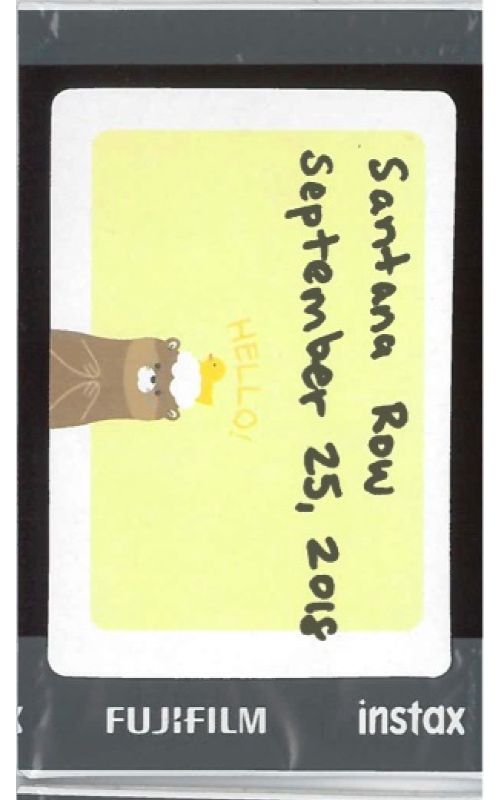 Santana Row
September 25, 2018
HELLO!
FUJIFILM
instax